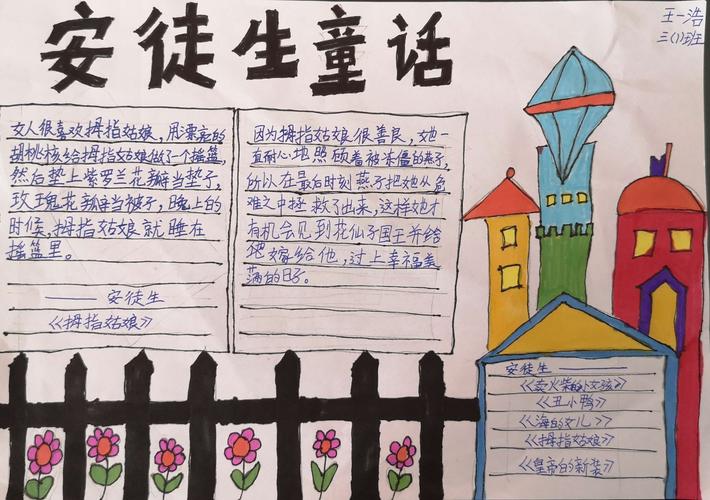 安徒生童话
王一浩
三(1)班
女人很喜欢拇指姑娘,用漂亮的
胡桃核给拇指姑娘做了一个摇篮,
然后垫上紫罗兰花瓣当垫子,
玫瑰花瓣当被子,晚上的
时候,拇指姑娘就睡在
摇篮里。
—— 安徒生
《拇指姑娘》
因为拇指姑娘很善良,她一
直耐心地照顾着被冻僵的燕子,
所以在最后时刻燕子把她从危
难之中拯救了出来,这样她才
有机会见到花仙子国王并给
她嫁给他,过上幸福美
满的日子。
安徒生 ——
《卖火柴的小女孩》
《丑小鸭》
《海的女儿》
《拇指姑娘》
《皇帝的新装》